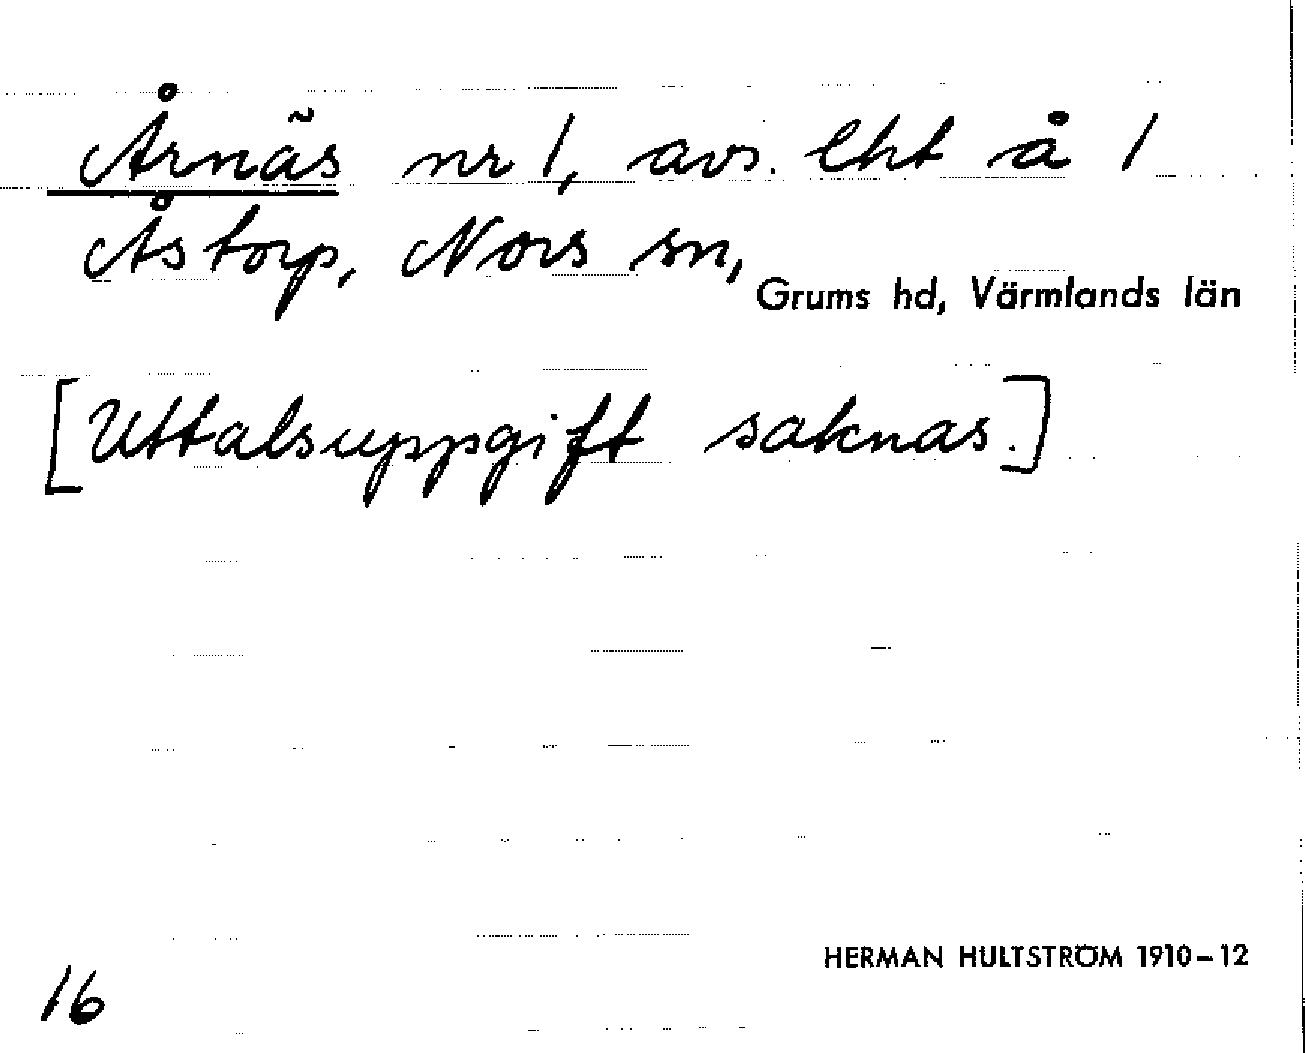 Årnäs nr 1, avs. lht å 1
Åstorp, Nors sn,
Grums hd, Värmlands län
[Uttalsuppgift saknas.]
HERMAN HULTSTRÖM 1910-12
16